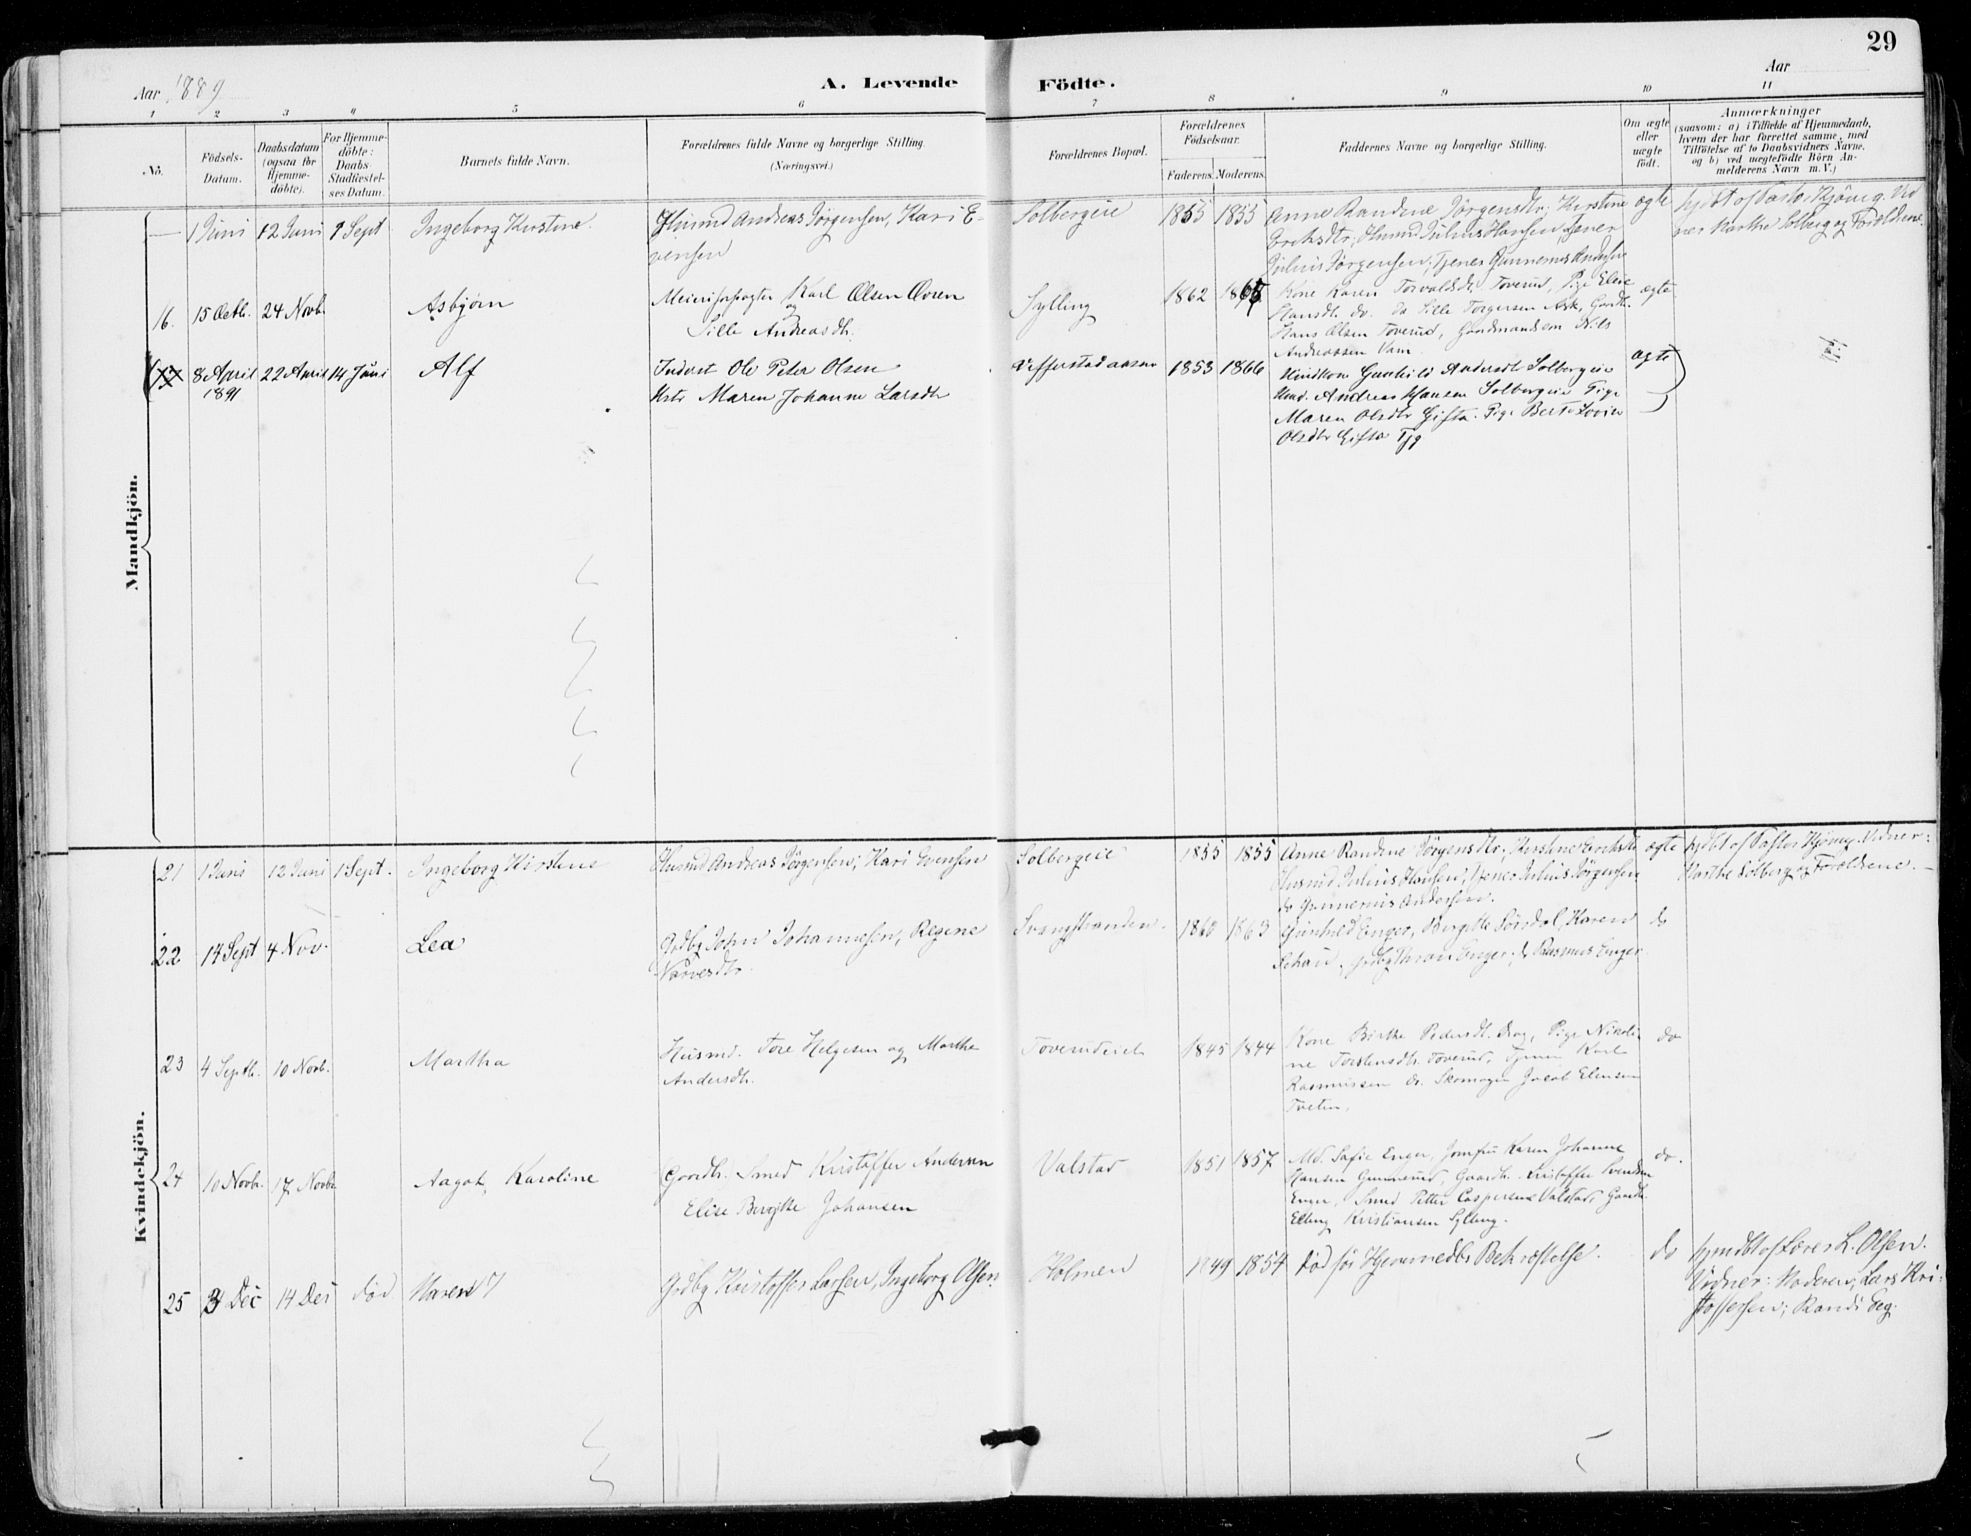 29
Aar 1889
A. Levende Födte.
Aar
1 2 3 4 5 6 7 8 9 10 11
Nö.
Födsels-
Datum.
Daabsdatum
(ogsaa for
Hjemme-
döbte).
For Hjemme-
döbte:
Daabs
Stadfæstel-
ses Datum.
Barnets fulde Navn.
Forældrenes fulde Navne og borgerlige Stilling
(Næringsvei.)
Forældrenes Bopæl.
Forældrenes
Födselsaar.
Faderens. Moderens.
Faddernes Navne og borgerlige Stilling.
Om ægte
eller
uægte
födt.
Anmærkninger
(saasom: a) i Tilfælde af Hjemmedaab,
hvem der har forrettet samme, med
Tilföielse af to Daabsvidners Navne,
og b) ved uægtefödte Börn An-
melderens Navn m. V.)
Mandkjön.
1 Juni 12 Juni 1 Sept Ingeborg Kirstine.
Husmd Andreas Jørgensen, Kari E-
vensen
Solbergeie 1855 1855
Anne Randene Jörgensdtr; Kirstine
Husmd Julius Hansen
Julius Jørgensen; Tjener Gunnerius Andersen
ægte
hjdbt af Pastor
Marthe Solberg og Forældrene.
16. 15 Octb. 24 Novb. Asbjørn
Karl Olsen Ovren
og
Sille Andreasdtr.
Sylling 1862
Kone Karen Torvaldsdt. Toverud, Pige
Hansdt. do. Sille Torgersen Ask, Gaardb.
Hans Olsen Toverud, Gaardmandssøn Nils
Andreassen
ægte
17 8 April 22 April 14 Juni Alf
1891
Inderst Ole Peter Olsen
Hstr Maren Johanne Larsdtr
1853 1866
Gunhild Andersdt Solbergeie
Andreas Hansen Solbergeie Pige
Maren Olsdtr Gifta. Pige
Olsdtr Gifta
ægte
Kvindekjön.
21 1 Juni 12 Juni 1 Sept. Ingeborg Kirstine
Husmd Andreas Jørgensen; Kari Evensen
Solbergeie 1855 1855
Anne Randene Jörgensdtr; Kirstine
Husmd Julius Hansen, Tjener Julius Jørgensen
do Gunnerius Andersen.
ægte
hjdbt af Pastor Vidner:
Marthe Solberg og Forældrene.
22 14 Sept 4 Nov. Lea
Grdbg John Johannesen, Regine
Narvesdtr.
Svangstranden. 1860 1863
Gunhild Enger, Birgitte Sørsdal, Karen
Enger; do Rasmus Enger
do
23 4 Septb. 10 Novb. Martha
Husmd. Tore Helgesen og Marthe
Andersdtr.
Toverudeiet 1845 1844
Kone Berthe Pedersdt. Pige Nikoli-
ne Torstensdtr Toverud, Tjener Karl
Rasmussen do. Skomager Jacob
Tveten,
do
24 10 Novbr. 17 Novbr. Aagot Karoline
Gaardb. Smed Kristoffer Andersen
Elise Birgitte Johansen
Valstad 1851 1857
Md. Sofie Enger, Jomfru Karen Johanne
Hansen Gunnerud, Gaardb. Kristoffer Svendsen
Enger, Smed Petter Caspersen Valstad, Gaardb.
Elling Kristiansen Sylling.
do.
25 3 Dec 14 Dec död Maren
Grdbg Kristoffer Larsen, Ingeborg Olsen
Holmen 1849 1854
död før Hjemmedbs Bekræftelse.
do
hjmdbt af Lærer L. Olsen.
Vidner: Moderen; Lars Kri-
stoffersen; Randi Eeg.